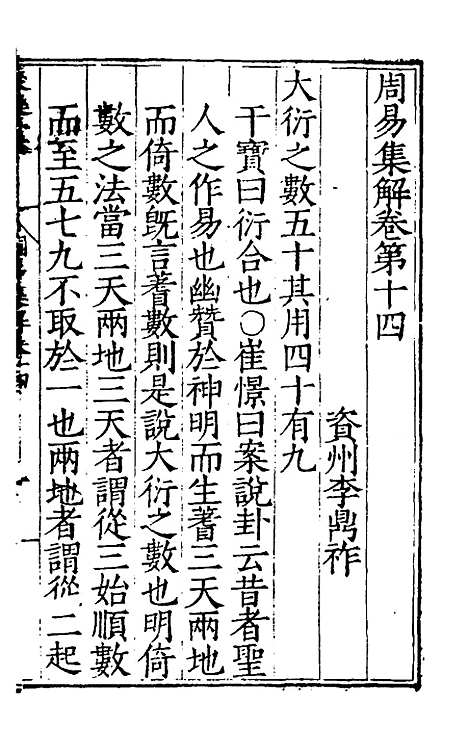 周易集解卷第十四
資州李鼎祚
大衍之數五十其用四十有九
干寶曰衍合也○崔憬曰案說卦云昔者聖
人之作易也幽贊於神明而生蓍三天兩地
而倚數旣言蓍數則是說大衍之數也明倚
數之法當三天兩地三天者謂從三始順數
而至五七九不取於一也兩地者謂從二起